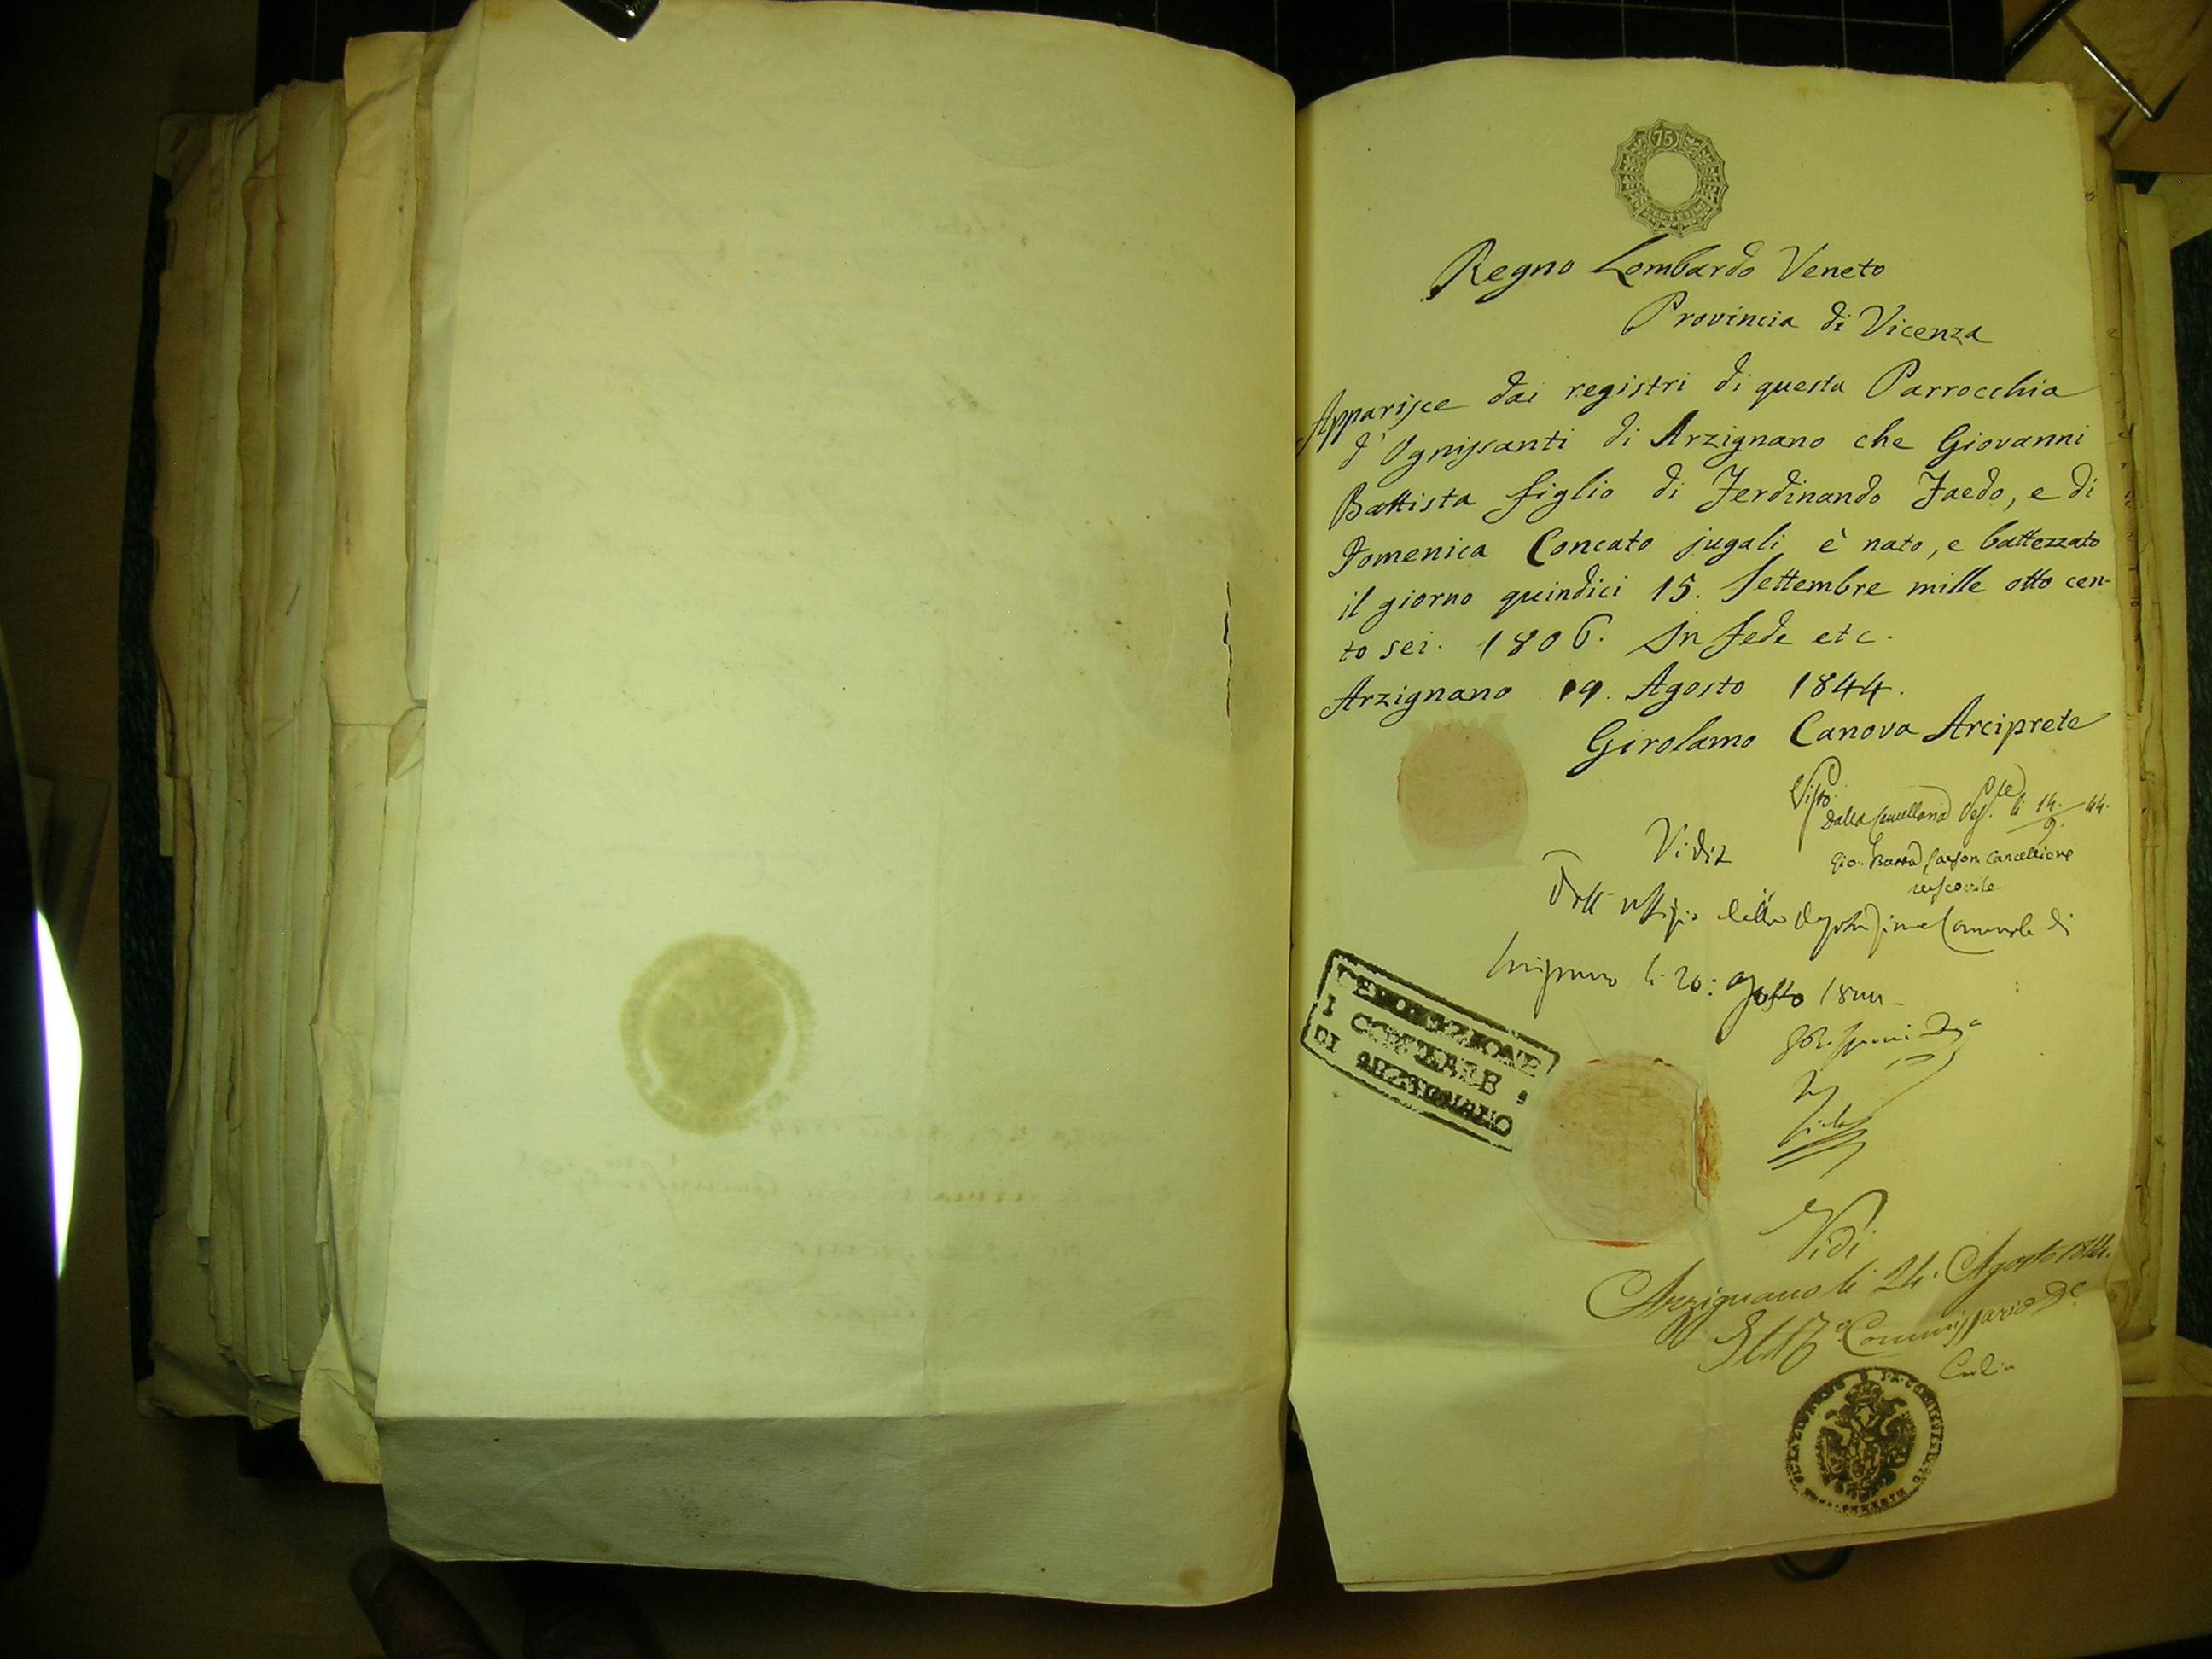 75
CENTESIMI
Regno Lombardo Veneto
Provincia di Vicenza
Apparisce dai registri di questa Parrocchia
d'Ognissanti di Arzignano che Giovanni
Battista figlio di Ferdinando Faedo, e di
Domenica Concato jugali è nato, e battezzato
il giorno quindici 15. Settembre mille otto cen-
to sei. 1806. In fede etc.
Arzignano 19. Agosto 1844.
Girolamo Canova Arciprete
Visto
Dalla Cancelleria li 14/9. 44.
Gio. Cancelliere
vescovile
Vidit
Dall' uffizio della Deputazione Comunale di
Arzignano li 20: Agosto 1844
DEPUTAZIONE
COMUNALE
DI ARZIGNANO
Vidi
Arzignano li 24. Agosto 1844.
Commissario